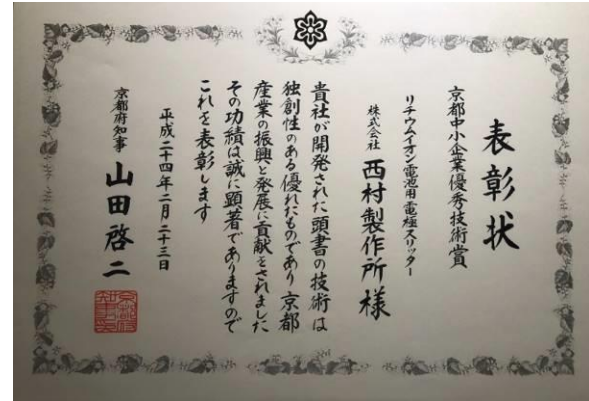 表彰状
京都中小企業優秀技術賞
リチウムイオン電池用電極スリッター
株式会社 西村製作所様
貴社が開発された頭書の技術は
独創性のある優れたものであり京都
産業の振興と発展に貢献をされました
その功績は誠に顕著でありますので
これを表彰します
平成二十四年二月二十三日
京都府知事 山田啓二